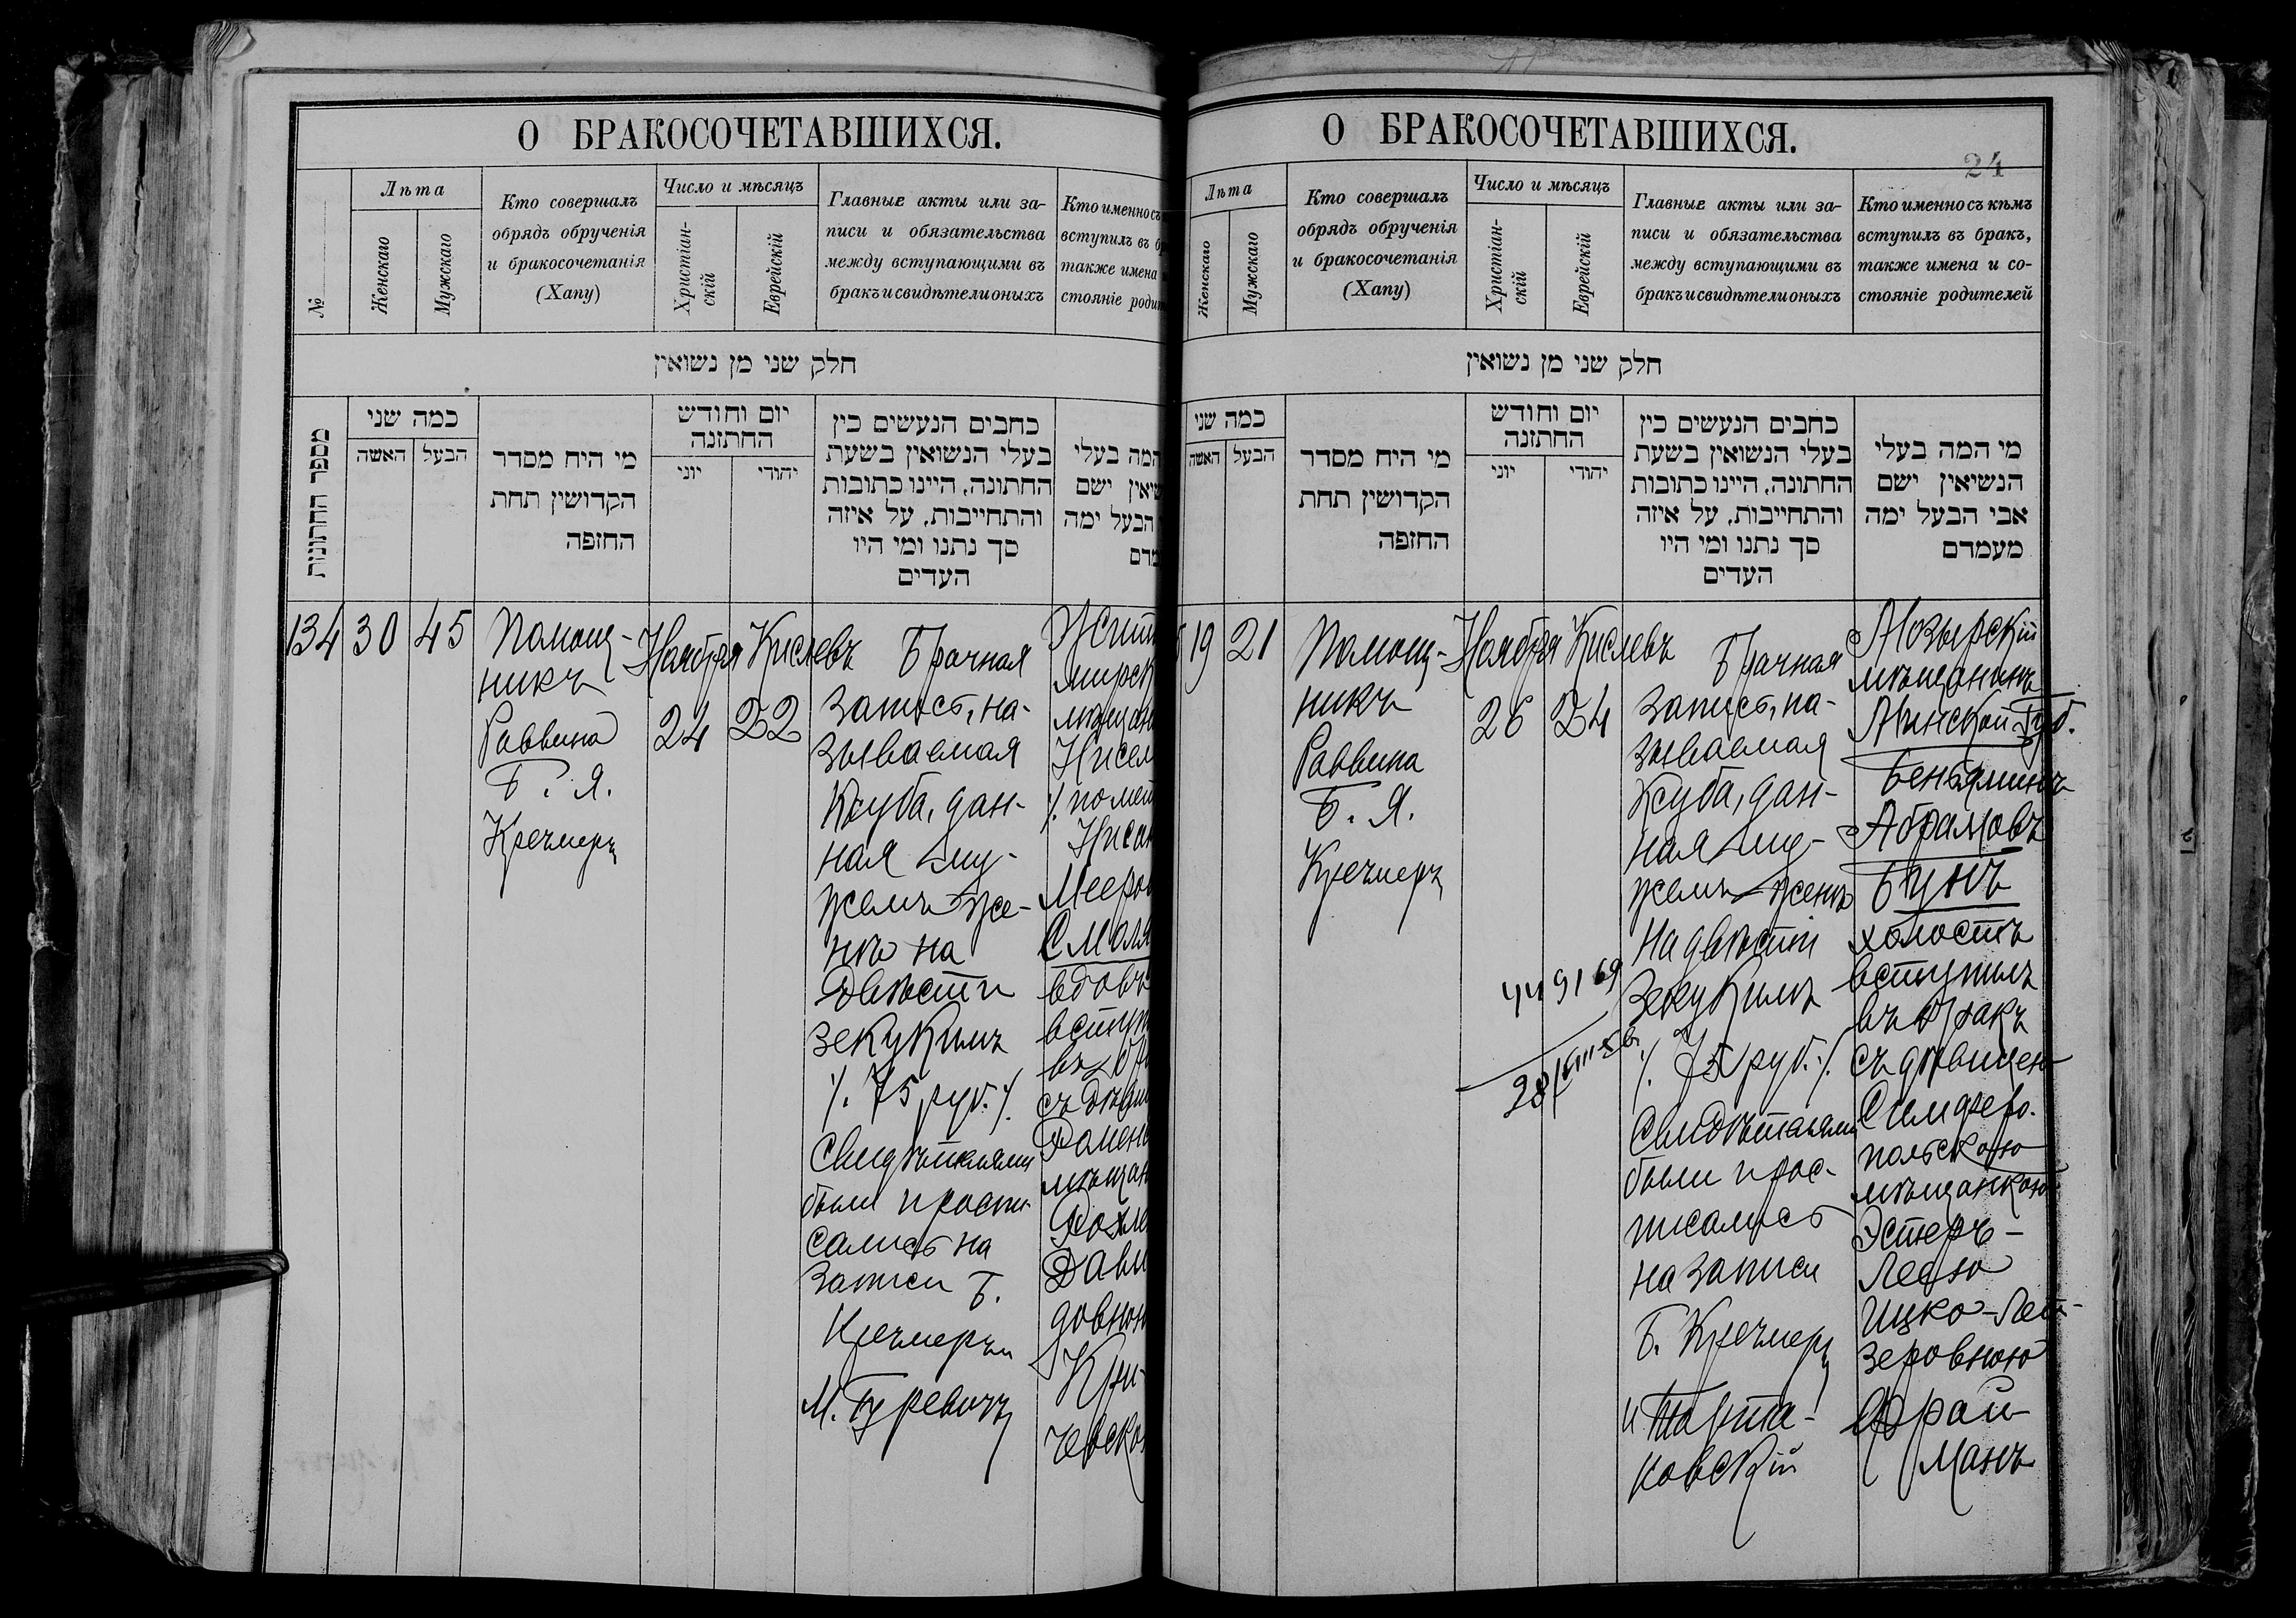 О БРАКОСОЧЕТАВШИХСЯ.
№
Лѣта
Женскаго
Мужскаго
Кто совершалъ
обрядъ обрученія
и бракосочетанія
(Хапу)
Число и мѣсяцъ
Христіан-
скій
Еврейскій
Главные акты или за-
писи и обязательства
между вступающими въ
бракъ и свидѣтели оныхъ
Кто именно съ
вступилъ въ б
также имена
стояніе родит
חלק שני מן נשואין
מספר החתונות
כמה שני
האשה
הבעל
מי היח מסדר
הקדושין תחת
החזפה
יום וחודש
החתזנה
יוני
יהודי
כחבים הנעשים כין
בעלי הנשואין בשעת
החתונה, היינו כתובות
והתחייבות, על איזה
סך נתנו ומי היו
העדים
המה בעלי
שיאין ישם
הבעל ימה
מדם
134
30
45
Помощ-
никъ
Раввина
Б. Я.
Кречмеръ
Ноября
24
Кислевъ
22
Брачная
запись, на-
зываемая
Ксуба, дан-
ная му-
жемъ же-
нѣ на
двѣсти
зекукимъ
/. 75 руб. /.
Свидѣтелями
были и распи-
сались на
записи Б.
Кречмеръ и
М. Гуревичъ
Жит
мирск
мѣщан
Нисел
/. по мет
Нисан
Мееро
Смоля
вдовъ
вступ
въ бр
съ дѣви
Ромен
мѣщан
Рохле
Дави
довною
Кри-
чевско
О БРАКОСОЧЕТАВШИХСЯ.
24
Лѣта
Женскаго
Мужскаго
Кто совершалъ
обрядъ обрученія
и бракосочетанія
(Хапу)
Число и мѣсяцъ
Христіан-
скій
Еврейскій
Главные акты или за-
писи и обязательства
между вступающими въ
бракъ и свидѣтели оныхъ
Кто именно съ кѣмъ
вступилъ въ бракъ,
также имена и со-
стояніе родителей
חלק שני מן נשואין
כמה שני
האשה
הבעל
מי היח מסדר
הקדושין תחת
החזפה
יום וחודש
החתזנה
יוני
יהודי
כחבים הנעשים כין
בעלי הנשואין בשעת
החתונה, היינו כתובות
והתחייבות, על איזה
סך נתנו ומי היו
העדים
מי המה בעלי
הנשיאין ישם
אבי הבעל ימה
מעמדם
19
21
Помощ-
никъ
Раввина
Б. Я.
Кречмеръ
Ноября
26
Кислевъ
24
Брачная
запись, на-
зываемая
Ксуба, дан-
ная му-
жемъ женѣ
на двѣсти
зекукимъ
/. 75 руб. /.
Свидѣтелями
были и рас-
писались
на записи
Б. Кречмеръ
и Тарта-
ковскій
Мозырскій
мѣщанинъ
Минской Губ.
Беньяминъ
Абрамовъ
Бунъ
холостъ
вступилъ
въ бракъ
съ дѣвицею
Симферо-
польскою
мѣщанкою
Эстеръ-
Леею
Ицко-Лей-
зеровною
Фрай-
манъ